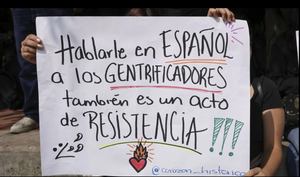 Hablarle en ESPAÑOL
a los GENTRIFICADORES
también es un acto
de RESISTENCIA!!!